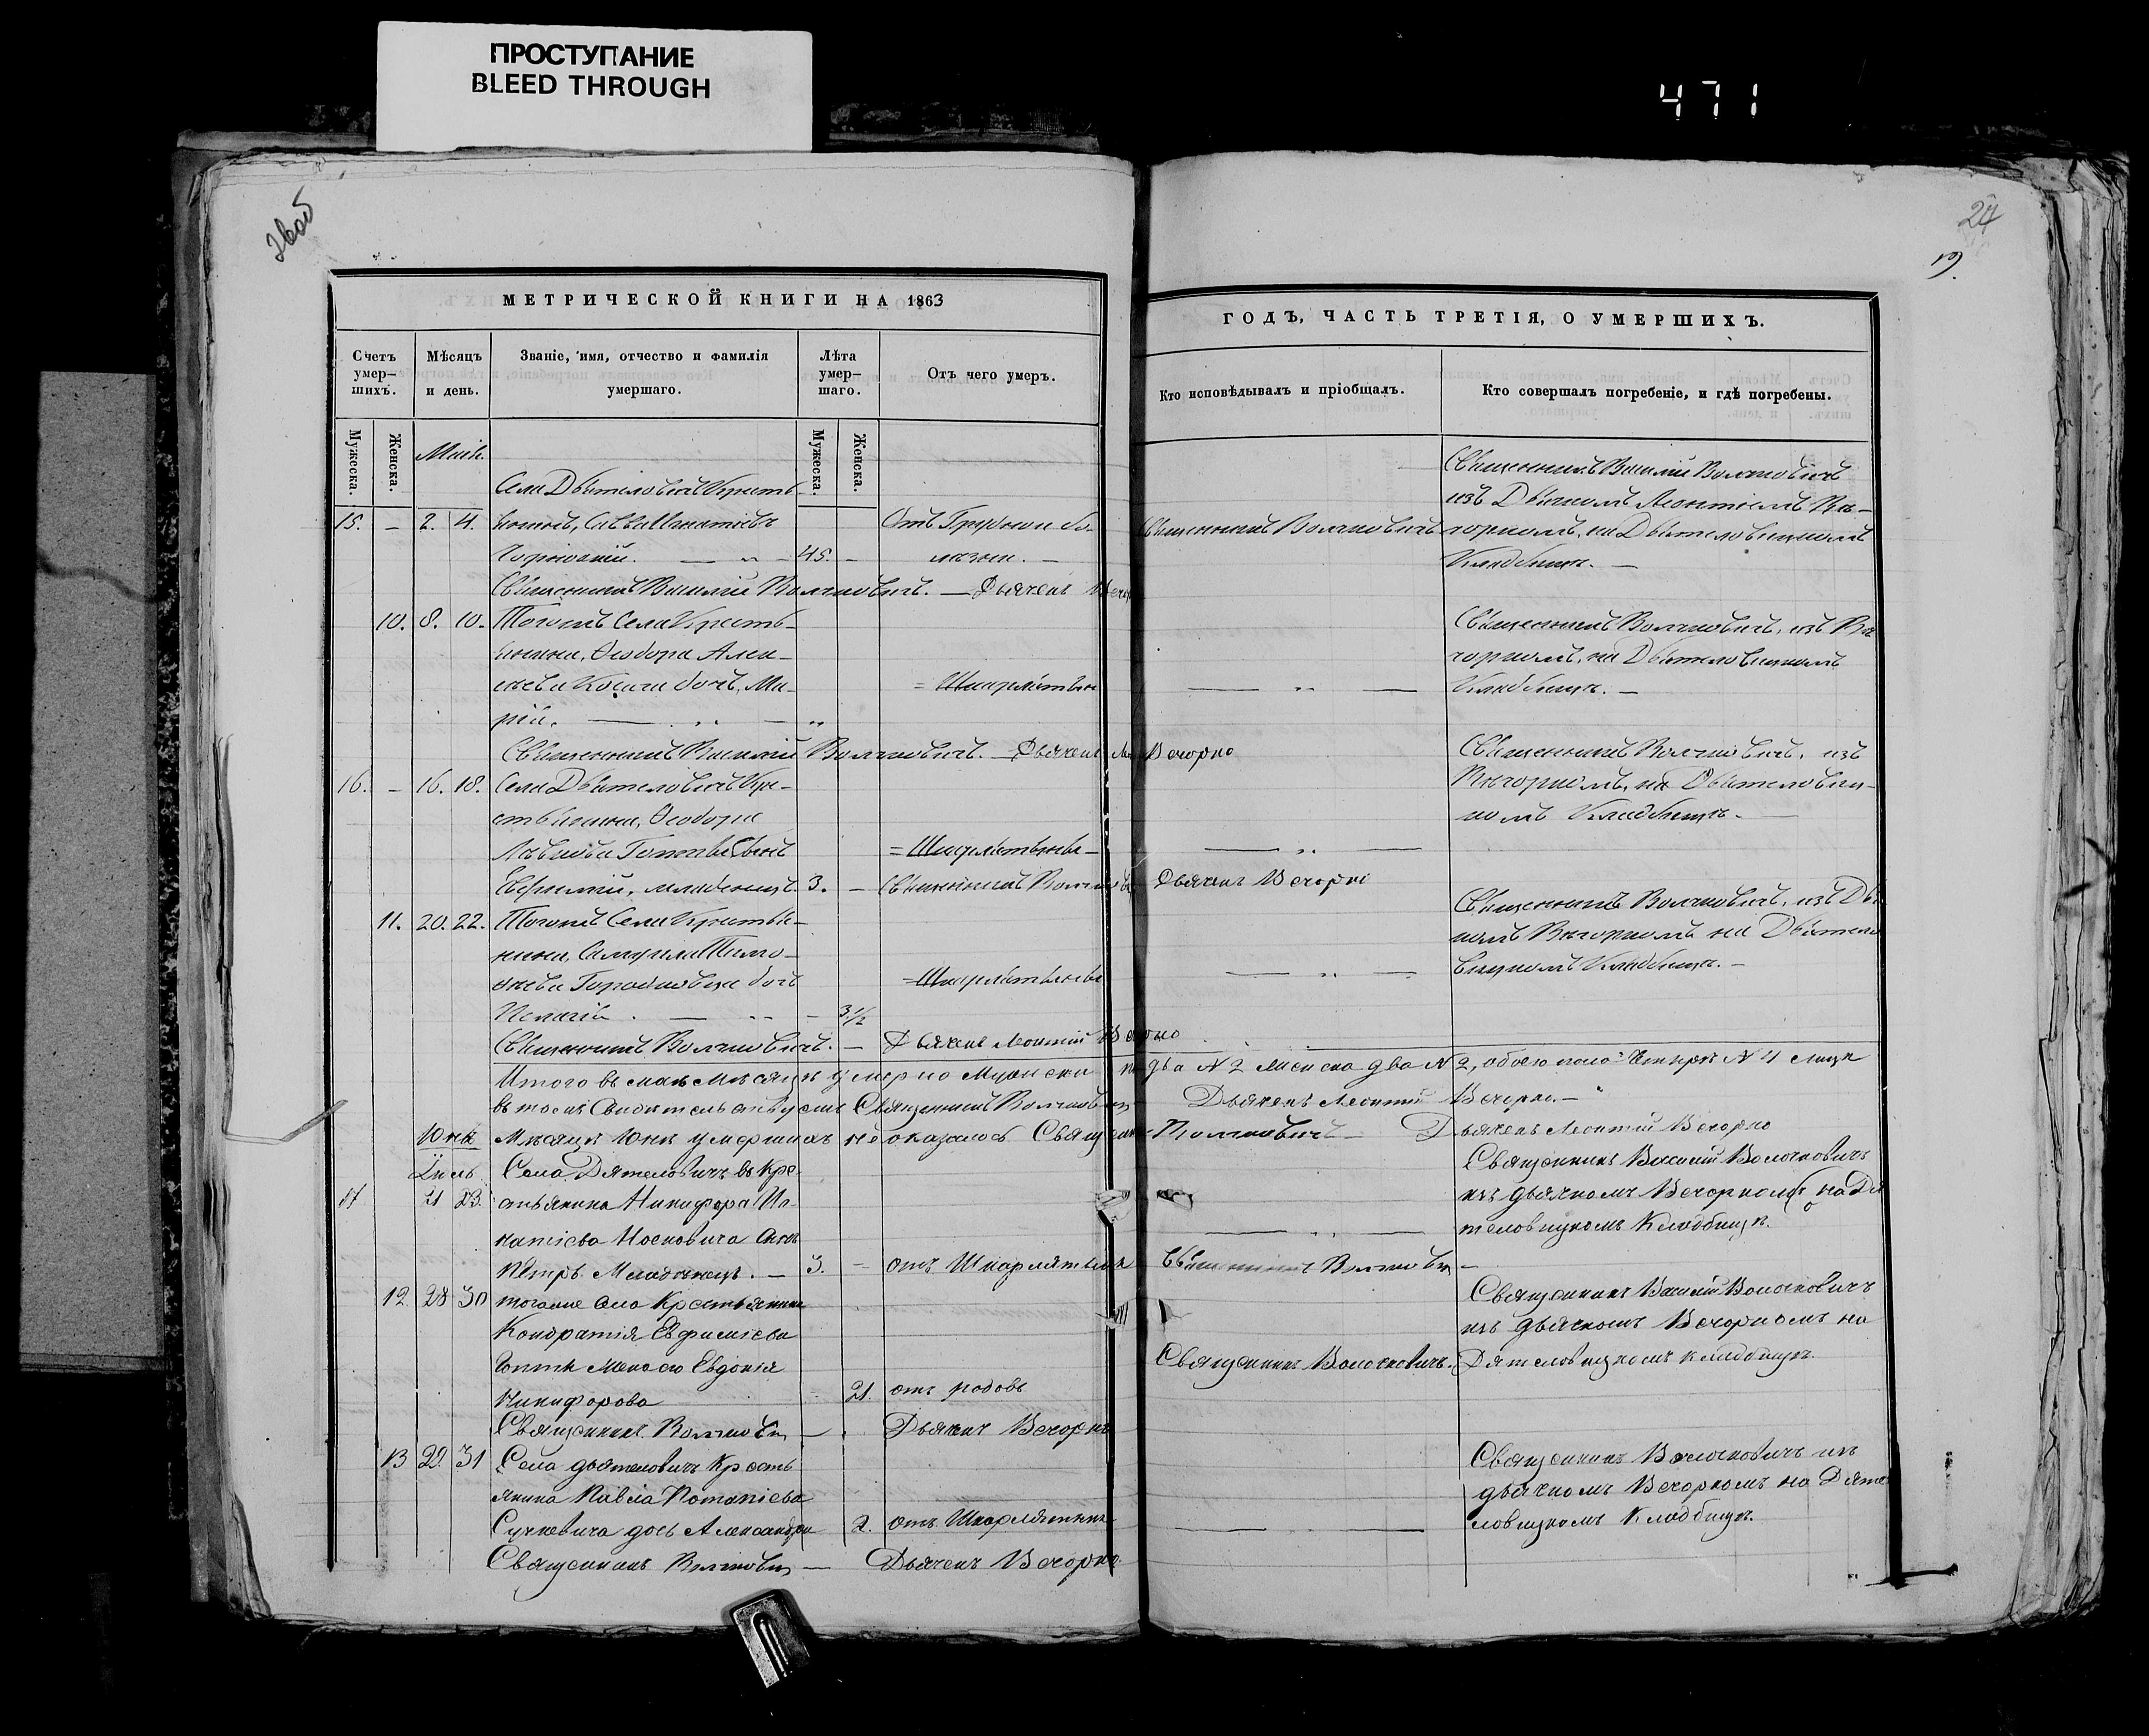 ПРОСТУПАНИЕ
BLEED THROUGH
471
24
МЕТРИЧЕСКОЙ КНИГИ НА 1863
ГОДЪ, ЧАСТЬ ТРЕТІЯ, О УМЕРШИХЪ.
Счетъ умер-
шихъ.
Мѣсяцъ
и день.
Званіе, имя, отчество и фамилія
умершаго.
Лѣта
умер-
шаго.
Отъ чего умеръ.
Кто исповѣдывалъ и пріобщалъ.
Кто совершалъ погребеніе, и гдѣ погребены.
Мужеска.
Женска.
Мужеска.
Женска.
Села Дятеловичъ Кресть-
15. – 2. 4. Савва Игнатіевъ
Отъ Грудной бо-
Священникъ Волочковичъ
45. –
лѣзни. –
Священникъ Василій Волочковичъ
изъ Дьячкомъ Леонтіемъ Ве-
чоркомъ, на Дятеловицкомъ
Кладбищѣ. –
Священникъ Василій Волочковичъ. – Дьячекъ Вечорко
10. 8. 10. Тогожъ Села Кресть-
янина, Ѳеодора Алек-
сѣева дочь, Ма-
рія. – „ –
= Шкарлятына
– „ –
Священникъ Волочковичъ, изъ Ве
чоркомъ, на Дятеловицкомъ
Кладбищѣ. –
Священникъ Василій Волочковичъ. – Дьячекъ Вечорко
16. – 16. 18. Села Дятеловичъ Кре-
стьянина, Ѳеодора
сынъ
Евфимій, младенецъ. 3. –
= Шкарлятына –
– „ –
Священникъ Волочковичъ, изъ
Вечоркомъ, на Дятеловиц-
комъ Кладбищѣ. –
Священникъ Волочкович Дьячекъ Вечорко
11. 20. 22. Тогожъ Села Крестья-
нина, Самуила Тимо-
ѳеева дочь
3½
= Шкарлятына
– „ –
Священникъ Волочковичъ, изъ Дья
комъ Вечоркомъ на Дятело
вицкомъ Кладбищѣ. –
Священникъ Волочковичъ. – Дьячекъ Леонтій Вечорко
Итого въ маѣ мѣсяцѣ умерло Мужеска два N 2 Женска два N 2, обоего пола Четыре N 4 лица
въ томъ Свидетельствуемъ Священникъ Волочкович Дьячекъ Леонтій Вечорко. –
Юнь Мѣсяцѣ Юнѣ умершихъ не оказалось Священникъ Волочковичъ – Дьячекъ Леонтій Вечорко
Іюль Села Дятеловичъ Кре-
21 23. стьянина Никифора Иг-
натіева Носковича сынъ
Петръ Младенецъ. – 3. –
отъ Шкарлятыны
– „ –
Священникъ Василій Волочковичъ
изъ дьячкомъ Вечоркомъ на Дя
теловицкомъ Кладбищѣ.
Священникъ Волочкович –
12. 28 30 тогоже села Крестьянина
Кондратія Евфиміева
жена его Евдокія
Никифорова
21. отъ родовъ
Священникъ Волочковичъ.
Священникъ Василій Волочковичъ
изъ дьячкомъ Вечоркомъ на
Дятеловицкомъ кладбищѣ.
Священникъ Волочкович – Дьячекъ Вечорко
13 29. 31 Села дятеловичъ Кресть
янина Павла Потапіева
Сучковича дочь Александра 2. отъ Шкарлятыны
– –
Священникъ Волочковичъ изъ
дьячкомъ Вечоркомъ на Дяте
ловицкомъ Кладбищѣ.
Священникъ Волочкович – Дьячекъ Вечорко